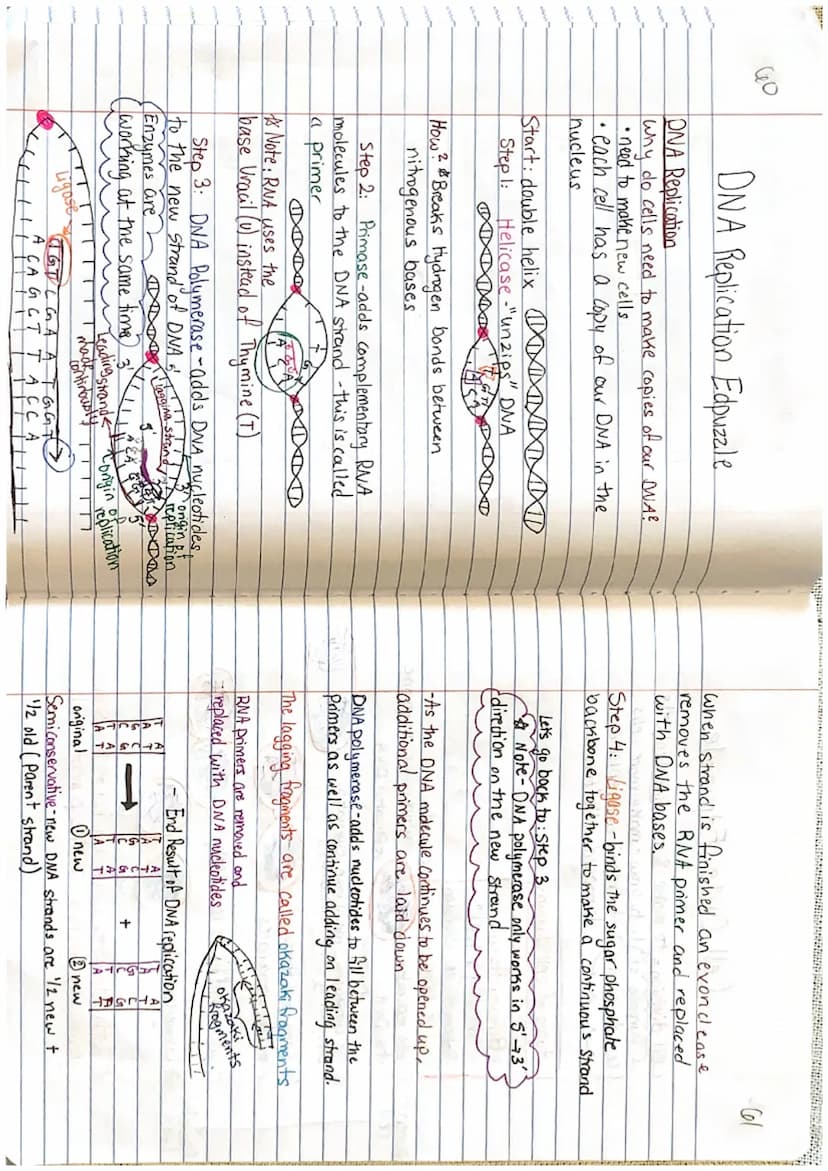 60
DNA Replication Edpuzzle
DNA Replication
Why do cells need to make copies of our DNA?
• need to make new cells
• each cell has a copy of our DNA in the
nucleus
Start: double helix
Step 1: Helicase - "unzips" DNA
How? Breaks Hydrogen bonds between
nitrogenous bases
Step 2: Primase - adds complementary RNA
molecules to the DNA strand - this is called
a primer
Note: RNA uses the
base Uracil (U) instead of Thymine (T)
Step 3: DNA Polymerase - adds DNA nucleotides
to the new strand of DNA
Enzymes are
working at the same time
5'
3'
lagging strand
3'
5'
origin of
replication
leading strand
made continuously
origin of
replication
Ligase
T G T C G A A T G G T
A C A G C T T A C C A
61
When strand is finished an exonclease
removes the RNA primer and replaced
with DNA bases.
Step 4: Ligase - binds the sugar phosphate
backbone together to make a continuous strand
Lets go back to: Step 3
Note - DNA polymerase only works in 5' → 3'
direction on the new strand
- As the DNA molecule continues to be opened up,
additional primers are laid down
DNA polymerase - adds nucleotides to fill between the
primers as well as continue adding on leading strand.
The lagging fragments - are called okazaki fragments
RNA primers are removed and
- replaced with DNA nucleotides
okazaki
fragments
- End Result of DNA replication
original
① new
+
② new
Semiconservative - new DNA strands are 1/2 new +
1/2 old (Parent strand)